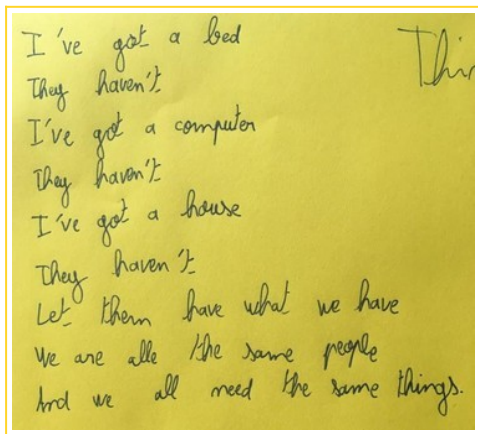 I've got a bed
They haven't
I've got a computer
They haven't
I've got a house
They haven't
Let them have what we have
We are alle the same people
And we all need the same things.